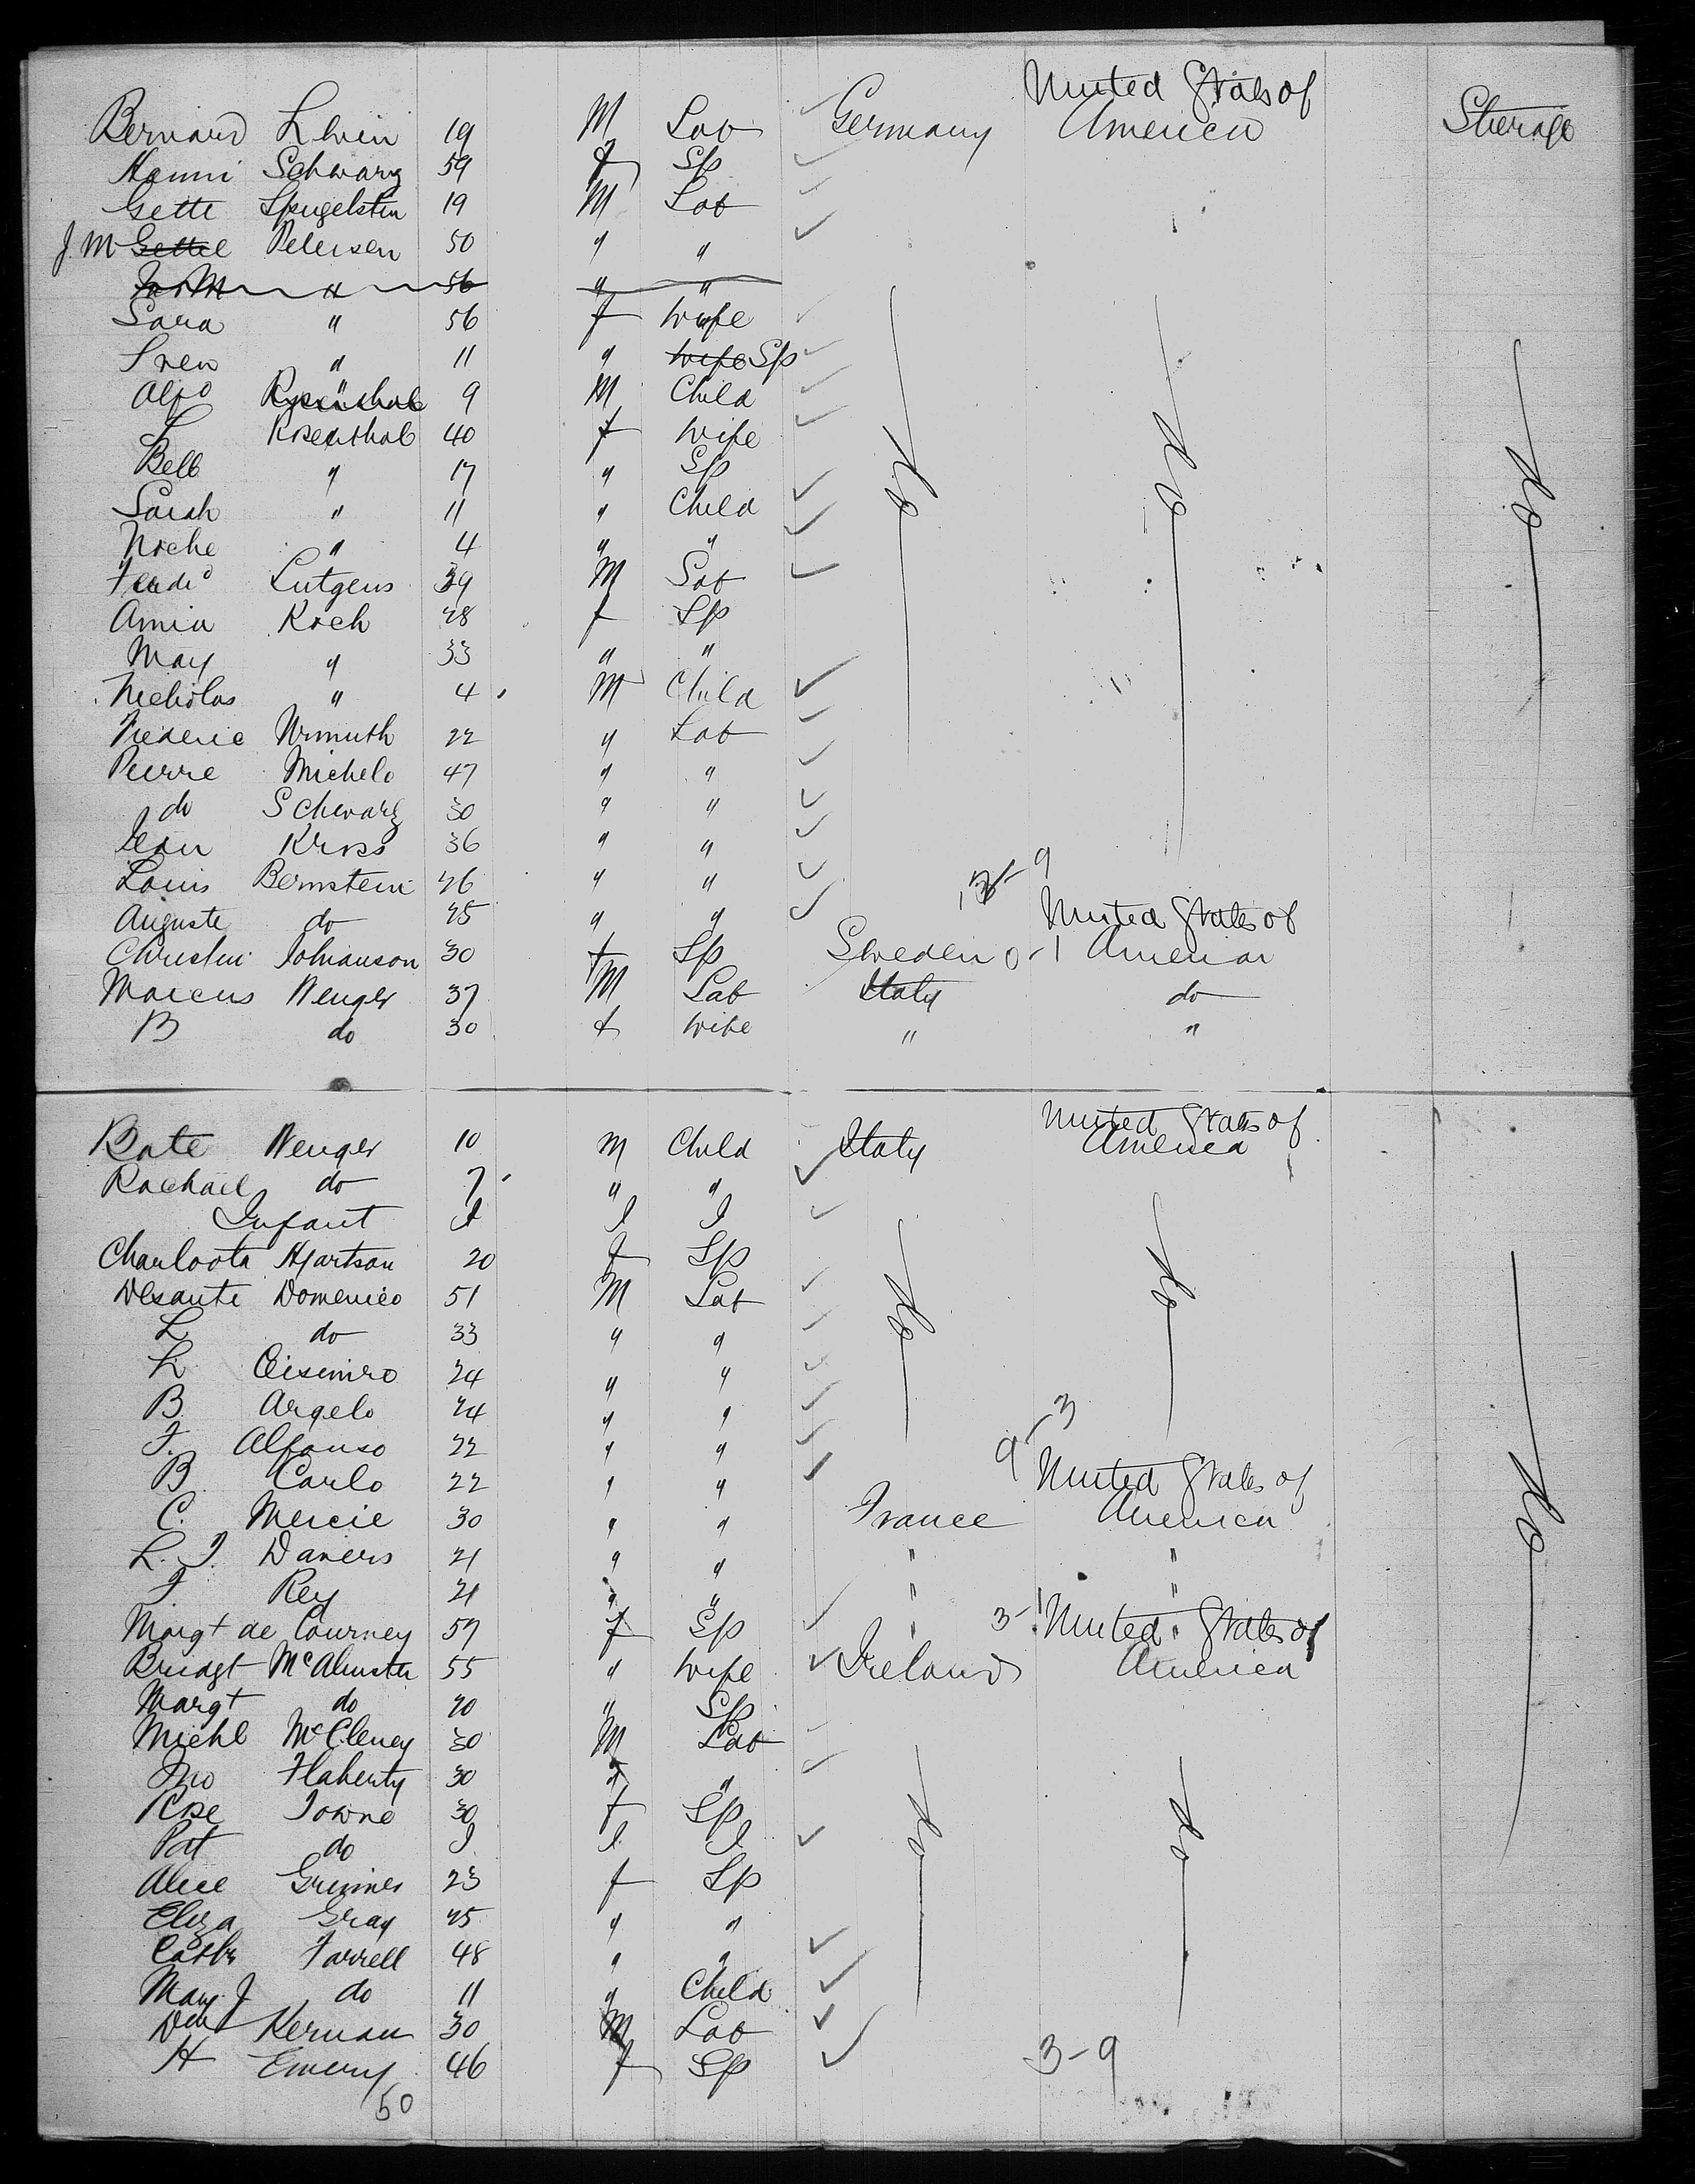 United States of
Bernard Lewin 19 M Lab Germany America Steerage
Hanni Schwarz 59 f Sp
Gette Spugelstin 19 M Lab
J. M Gettel Petersen 50 " "
Jno M " 56 " "
Sara " 56 f Wife
Sven " 11 " Wife Sp
Alfd " 9 M Child
L Rosenthal 40 f Wife
Bell " 17 " Sp
Sarah " 11 " Child
Noche " 4 " " do do do
Ferdd Lutgens 39 M Lab
Amia Koch 28 f Sp
May " 33 " "
Nicholas " 4 M Child
Frederic Wrmuth 22 " Lab
Pierre Michelo 47 " "
do Schwarz 30 " "
Jean Kross 36 " "
Louis Bernstein 26 " " 9
Auguste do 25 " " United States of
Christin Johanson 30 f Sp Sweden 0-1 America
Marcus Wenger 37 M Lab Italy do
B do 30 f Wife " "
United States of
Bate Wenger 10 M Child Italy America
Rachael do 7 " "
Infant I I I
Charloota Hjartson 20 f Sp
Desante Domenico 51 M Lab
L do 33 " " do do
L Cisimiro 24 " "
B Argelo 24 " " 9-3
F. Alfonso 22 " "
B Carlo 22 " " United States of
C. Mercie 30 " " France America do
L. J. Daners 21 " " " "
F Rey 21 " " " "
Margt de Courney 57 f Sp " 3-1 United States of
Bridgt McAlinster 55 " Wife Ireland America
Margt do 20 " Sp
Michl McCleney 30 M Lab
Jno Flaherty 30 " "
Rose Towne 30 f Sp
Pat do I I I do do
Alice Grimes 23 f Sp
Eliza Gray 25 " "
Cathr Farrell 48 " "
May J do 11 " Child
Danl Kernan 30 M Lab
H Emery 46 f Sp 3-9
50